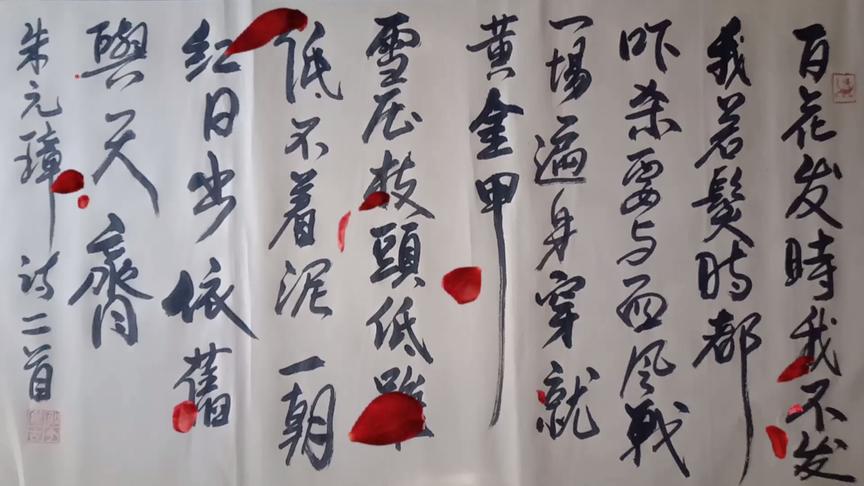 百花发時我不发
我若髮時都
吓杀要与西风战
一場遍身穿就
黄金甲
雪压枝頭低雖
低不着泥一朝
红日出依舊
與天齊
朱元璋 诗二首